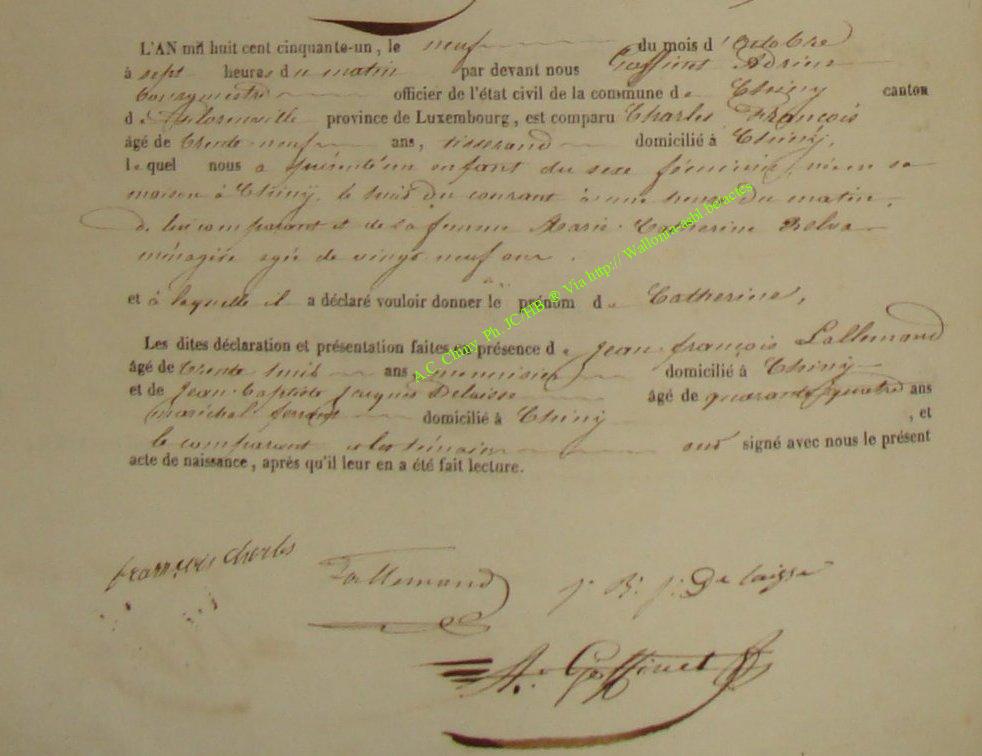 L'AN mil huit cent cinquante-un, le neuf du mois d'Octobre
à sept heures du matin par devant nous Goffinet Adrien
bourgmestre officier de l'état civil de la commune de Chiny canton
de Florenville province de Luxembourg, est comparu Charles François
âgé de trente-neuf ans, tisserand domicilié à Chiny,
lequel nous a présenté un enfant du sexe féminin, née en sa
maison à Chiny, le huit du courant à une heure du matin,
de lui comparant et de sa femme Marie Catherine
ménagère agée de vingt neuf ans.
et à laquelle il a déclaré vouloir donner le prénom de Catherine,
Les dites déclaration et présentation faites en présence de Jean-françois Lallemand
âgé de trente huit ans menuisier domicilié à Chiny
et de Jean-Baptiste Jacques Delaisse âgé de quarante quatre ans
maréchal ferrant domicilié à Chiny , et
le comparant et les témoins ont signé avec nous le présent
acte de naissance, après qu'il leur en a été fait lecture.
françois charles
Lallemand
J. B. J. De laisse
A. Goffinet
A.C. Chiny Ph. JC/HB ® Via http:// Wallonia-asbl.be/actes